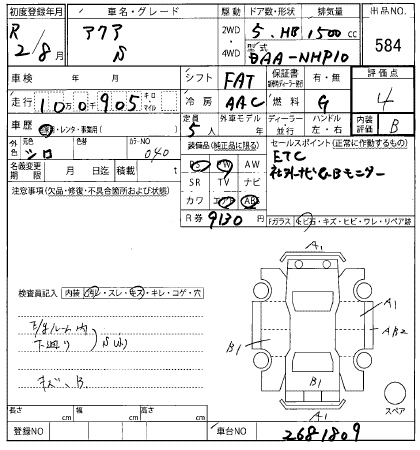 初度登録年月 車名・グレード 駆動 ドア数・形状 排気量 出品NO.
R 2/8月 アクア S 2WD 4WD 5.HB 1500cc 584
型式 DAA-NHP10
車検 年 月 シフト FAT 保証書 有・無 評価点
走行 10万0千905 キロ マイル 冷房 AAC 燃料 G 4
車歴 レンタ・事業用 定員 5人 外車モデル ディーラー 並行 ハンドル 左・右 内装評価 B
外色 元色 シロ 色替 カラーNO 040 装備品(純正品に限る) セールスポイント(正常に作動するもの)
名義変更期限 月 日迄 積載 t PS PW AW ETC
SR TV ナビ 社外ナビ G.Bモニター
注意事項(欠品・修復・不具合箇所および状態) カワ エアB ABS
R券 9130円 Fガラス ヒビ石・キズ・ヒビ・ワレ・リペア跡
A1
検査員記入 内装 ヨゴレ・スレ・キズ・キレ・コゲ・穴
A1
下廻り S(小) AB2
B1
キズ、B. B1
A1 スペア
長さ cm 幅 cm 高さ cm
登録NO 車台NO 2681809